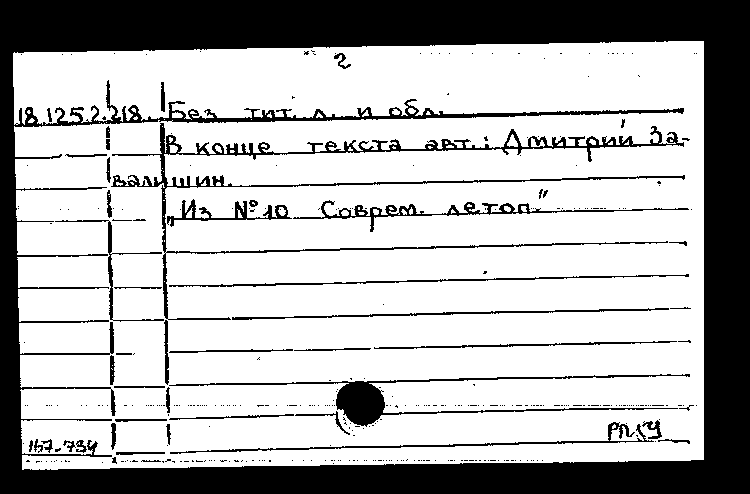 2
18.125.2.218. Без тит. л. и обл.
В конце текста авт.: Дмитрий За-
валишин.
„Из № 10 Соврем. летоп.“
167-734